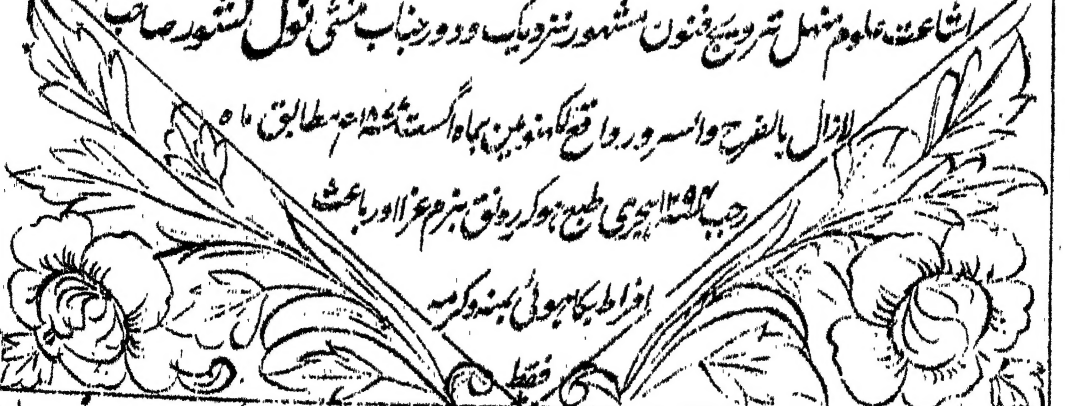 اشاعت علوم منہل ترویج فنون مشہور نزدیک و دور جناب منشی نول کشور صاحب
لازال بالفرح والسرور واقع لکھنو مین بماہ اگست ء مطابق ماہ
رجب ہجری طبع ہوکر رونق بزم عزا اور باعث
افراط بکا ہوئی بمنہ وکرمہ
فقط